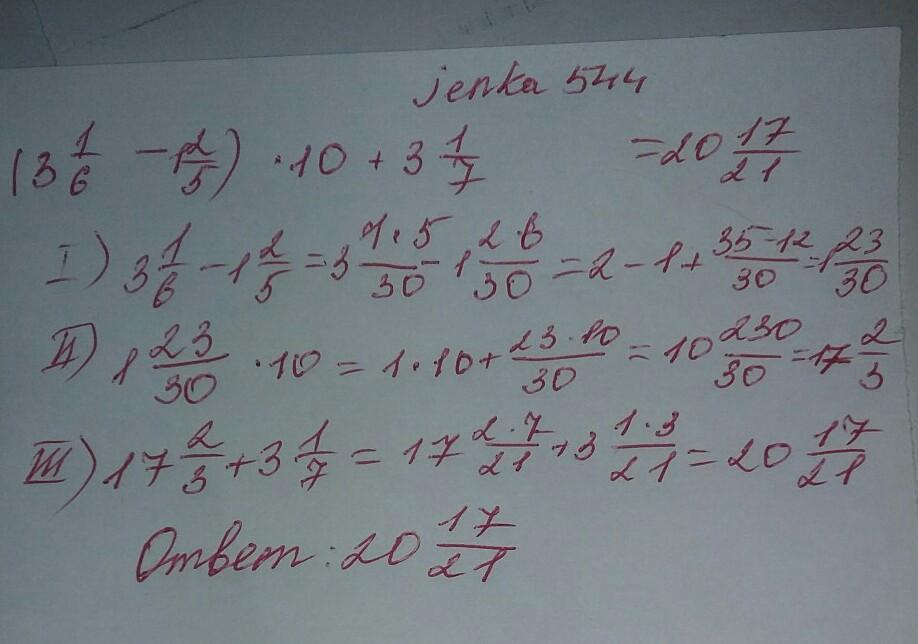 jenka 544
(3 1/6 - 1 2/5) · 10 + 3 1/7 = 20 17/21
I) 3 1/6 - 1 2/5 = 3 1·5/30 - 1 2·6/30 = 2 - 1 + 35-12/30 = 1 23/30
II) 1 23/30 · 10 = 1·10 + 23·10/30 = 10 230/30 = 17 2/3
III) 17 2/3 + 3 1/7 = 17 2·7/21 + 3 1·3/21 = 20 17/21
Ответ: 20 17/21